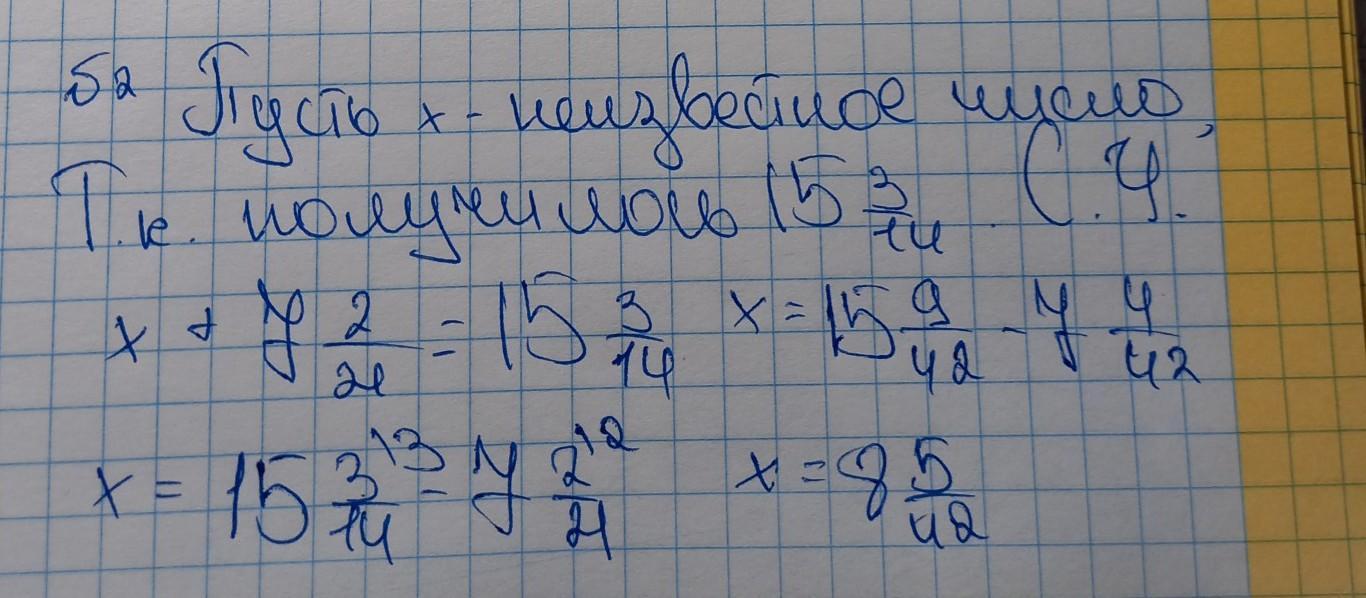 б2 Пусть x - неизвестное число,
Т.к. получилось 15 3/14. С.У.
x + 7 2/21 = 15 3/14 x = 15 9/42 - 7 4/42
x = 15 3\3/14 - 7 2\2/21 x = 8 5/42